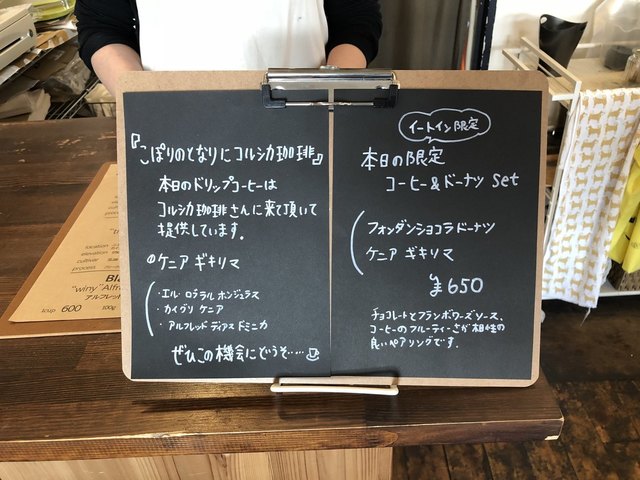 『こぽりのとなりにコルシカ珈琲』
本日のドリップコーヒーは
コルシカ珈琲さんに来て頂いて
提供しています。
ケニア ギキリマ
・エル・ロデラル ホンジュラス
・カイグリ ケニア
・アルフレッド ディアス ドミニカ
ぜひこの機会にどうぞ……
イートイン限定
本日の限定
コーヒー&ドーナツ set
フォンダンショコラドーナツ
ケニア ギキリマ
¥650
チョコレートとフランボワーズソース、
コーヒーのフルーティーさが相性の
良いペアリングです。
location
elevation
cultivar
process
"winy" Alf
アルフレッド
1cup 600 100g